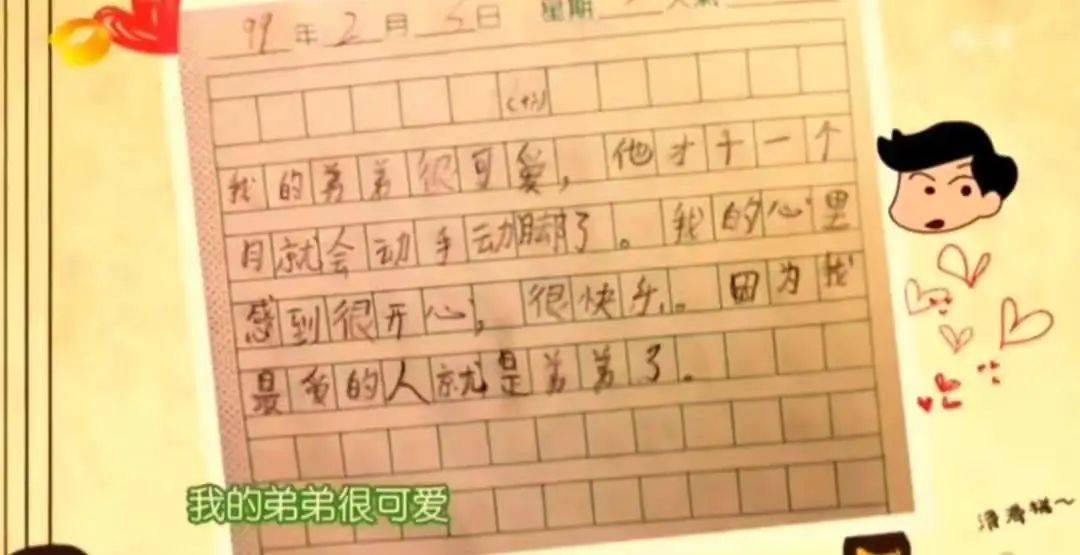 99年2月5日 星期
我的弟弟很可爱，他才十一个
月就会动手动脚了。我的心里
感到很开心，很快乐。因为我
最爱的人就是弟弟了。
我的弟弟很可爱